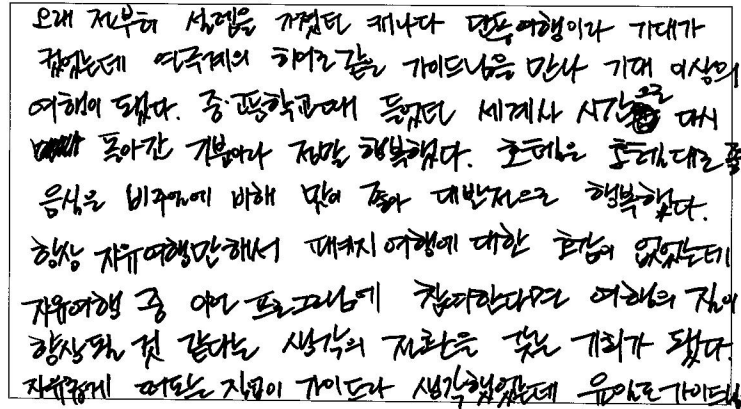 오래 전부터 설렘을 가졌던 캐나다 단풍여행이라 기대가
컸었는데 연극계의 히어로 같은 가이드님을 만나 기대 이상의
여행이 됐다. 중·고등학교때 들었던 세계사 시간으로 다시
돌아간 기분이라 정말 행복했다. 호텔은 호텔대로 좋
음식은 비주얼에 비해 맛이 좋아 대반전으로 행복했다.
항상 자유여행만해서 패키지 여행에 대한 호감이 없었는데
자유여행 중 이런 프로그램에 참여한다면 여행의 질이
향상될 것 같다는 생각의 전환을 갖는 기회가 됐다.
자유롭게 떠도는 직업이 가이드라 생각했었는데 유일로 가이드님